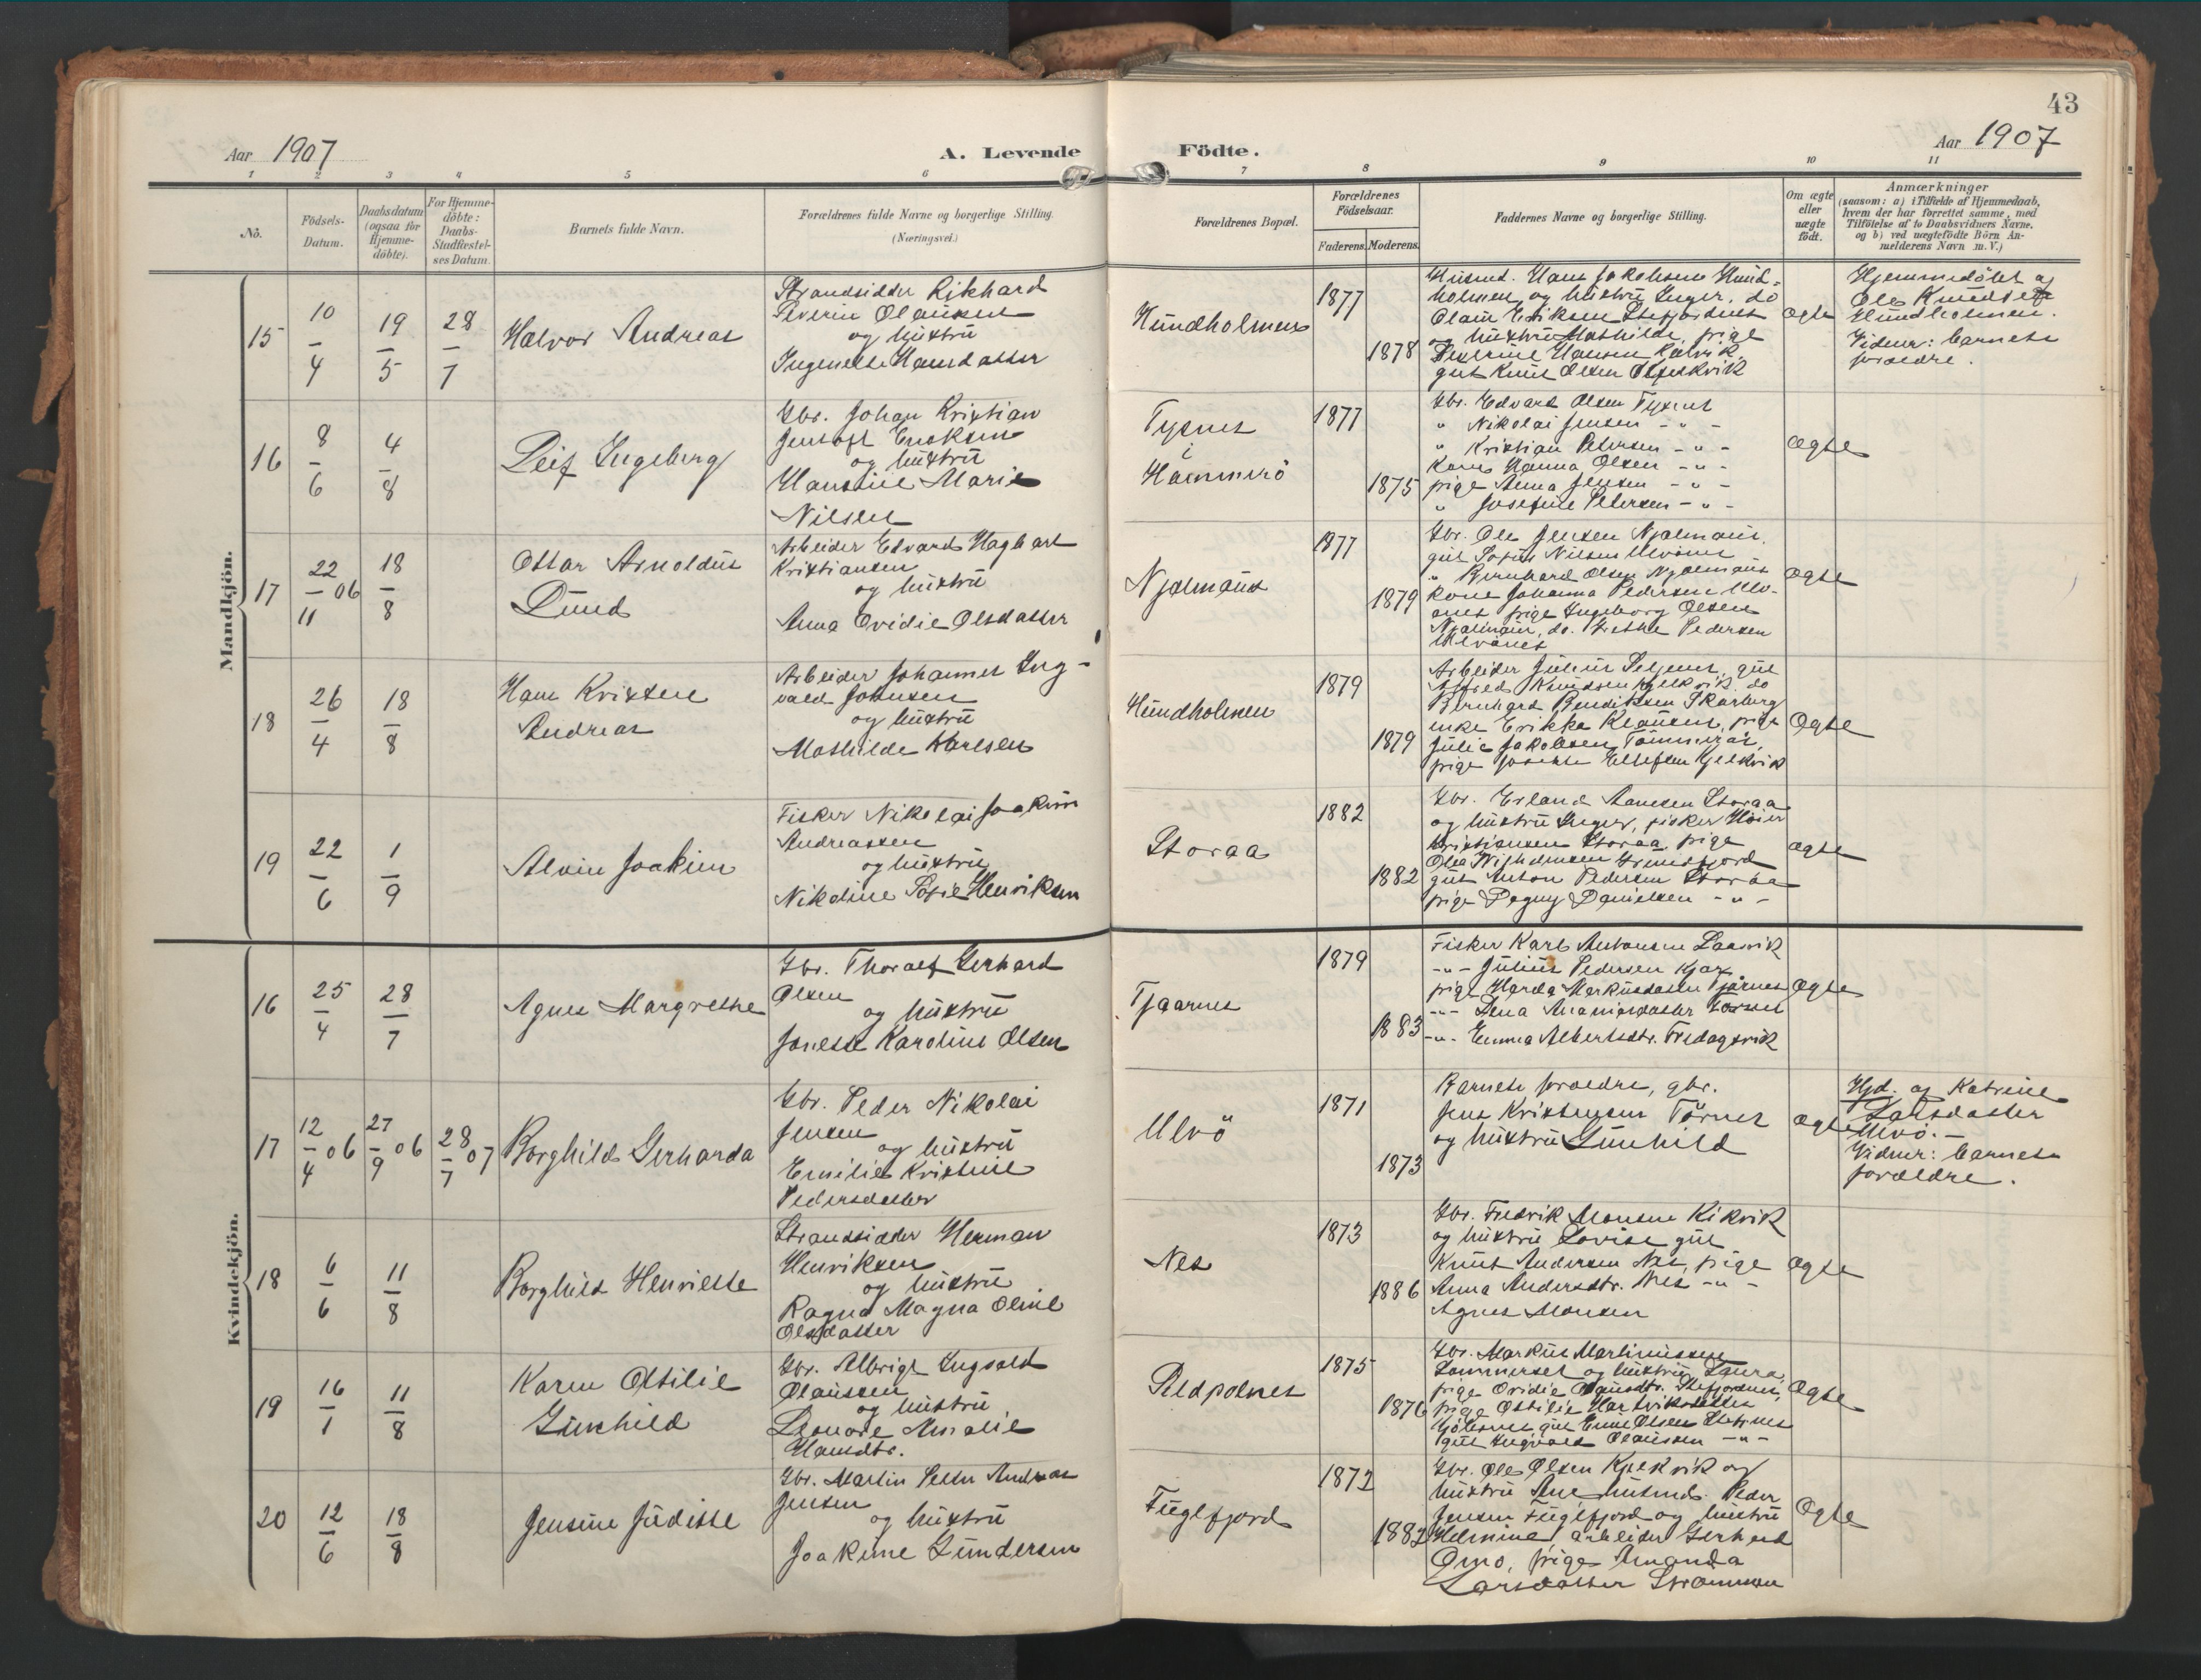 43
Aar 1907
A. Levende
Födte.
Aar 1907
1 2 3 4 5 6 7 8 9 10 11
Nö.
Födsels-
Datum.
Daabsdatum
(ogsaa för
Hjemme-
döbte).
For Hjemme-
döbte:
Daabs-
Stadfæstel-
ses Datum.
Barnets fulde Navn.
Forældrenes fulde Navne og borgerlige Stilling.
(Næringsvei.)
Forældrenes Bopæl.
Forældrenes
Födselsaar.
Faderens.
Moderens.
Faddernes Navne og borgerlige Stilling.
Om ægte
eller
uægte
födt.
Anmærkninger
(saasom: a) i Tilfælde af Hjemmedaab,
hvem der har forrettet samme, med
Tilföielse af to Daabsvidners Navne.
og b) ved uægtefödte Börn An-
melderens Navn m. V.)
Mandkjön.
15
10/4
19/5
28/7
Halvor Andreas
Strandsidder Rikhard
Severin Olausen
og hustru
Ingenette Hansdatter
Hundholmen
1877
1878
Husmd. Hans Jakobsen Hund-
holmen og hustru Inger, do
Olaus Eriksen Stefjordnes
og hustru Mathilde, pige
Severine Hansen
gut Knut Olsen
Ægte
Hjemmedöbt af
Ole Knudsen
Hundholmen.
Vidner: barnets
forældre.
16
8/6
4/8
Leif Ingeberg
Gbr. Johan Kristian
Jentoft Enoksen
og hustru
Hansine Marie
Nilsen
Tysnes
i
Hammerö
1877
1875
Gbr. Edvard Olsen Tysnes
" Nikolai Jensen - " -
" Kristian Petersen - " -
Kone Hanna Olsen - " -
pige Anna Jensen - " -
" Josefine Petersen - " -
Ægte
17
22/11 06
18/8
Ottar Arnoldus
Lund
Arbeider Edvard Hagbart
Kristiansen
og hustru
Anna Ovidie Olsdatter
Njalmaus
1877
1879
Gbr. Ole Jensen Njalmaus,
gut Sofus Nilsen Ulvönes
" Bernhard Olsen Njalmaus
kone Johanna Pedersen Ulv-
önes pige Ingeborg Olsen
Njalmaus, do. Grethe Pedersen
Ulvönes
Ægte
18
26/4
18/8
Hans Kristen
Andreas
Arbeider Johannes Ing-
vald Johnsen
og hustru
Mathilde Karlsen
Hundholmen
1879
1879
Arbeider Julius Seljenes, gut
Alfred Knudsen Kjelkvik, do
Bernhard Bendiksen Skarberg
enke Erikka Klausen, pige
Julie Jakobsen Tömmeraas,
pige Josefine Ellefsen Kjelkvik
Ægte
19
22/6
1/9
Alvin Joakim
Fisker Nikolai Joakim
Andreassen
og hustru
Nikoline Sofie Henriksen
Storaa
1882
1882
Gbr. Erland Aanesen Storaa
og hustru Inger, fisker Höier
Kristiansen Storaa, pige
Olea Grundfjord
gut Anton Pedersen Storaa
pige Dagny Danielsen - " -
Ægte
Kvindekjön.
16
25/4
28/7
Agnes Margrethe
Gbr. Thoralf Gerhard
Olsen
og hustru
Jonette Karoline Olsen
Tjaarnes
1879
1883
Fisker Karl Antonsen Laavik
- " - Julius Pedersen Kjær
pige Harda Markusdatter Tjärnes
- " - Lena Ananiasdatter
- " - Emma Albertsdtr. Fredagsvik
Ægte
17
12/4 06
27/9 06
28/7 07
Borghild Gerharda
Gbr. Peder Nikolai
Jensen
og hustru
Emilie Kristine
Pedersdatter
Ulvö
1871
1873
Barnets forældre, gbr.
Jens Kristensen Törnes
og hustru Gunhild
Ægte
Hjd. af Katrine
Larsdatter
Ulvö. -
Vidner: barnets
forældre.
18
6/6
11/8
Borghild Henriette
Strandsidder Herman
Henriksen
og hustru
Ragna Magna Oline
Olsdatter
Nes
1873
1886
Gbr. Fredrik Monsen Kikvik
og hustru Lovise gut
Knut Andersen Nes, pige
Anna Andersdtr. Nes - " -
Agnes Monsen
Ægte
19
16/1
11/8
Karen Ottilie
Gunhild
Gbr. Albrigt Ingvald
Olaussen
og hustru
Leonore Amalie
Hansdtr.
Redpolnes
1875
1876
Gbr. Markus Martinussen
Sommerset og hustru Laura,
pige Ovidie Olausdtr. Stefjordnes,
pige Ottilie Hartviksdatter
gut Enok Olsen
gut Ingvald Olaussen - " -
Ægte
20
12/6
18/8
Jensine Juditte
Gbr. Martin Peder Andreas
Jensen
og hustru
Joakime Gundersen
Fuglfjord
1872
1882
Gbr. Ole Olsen Kjelkvik og
hustru Ane husmd. Peder
Jensen Fuglfjord og hustru
Helmine, arbeider Gerhard
Ørno, pige Amanda
Larsdatter Strömmen
Ægte